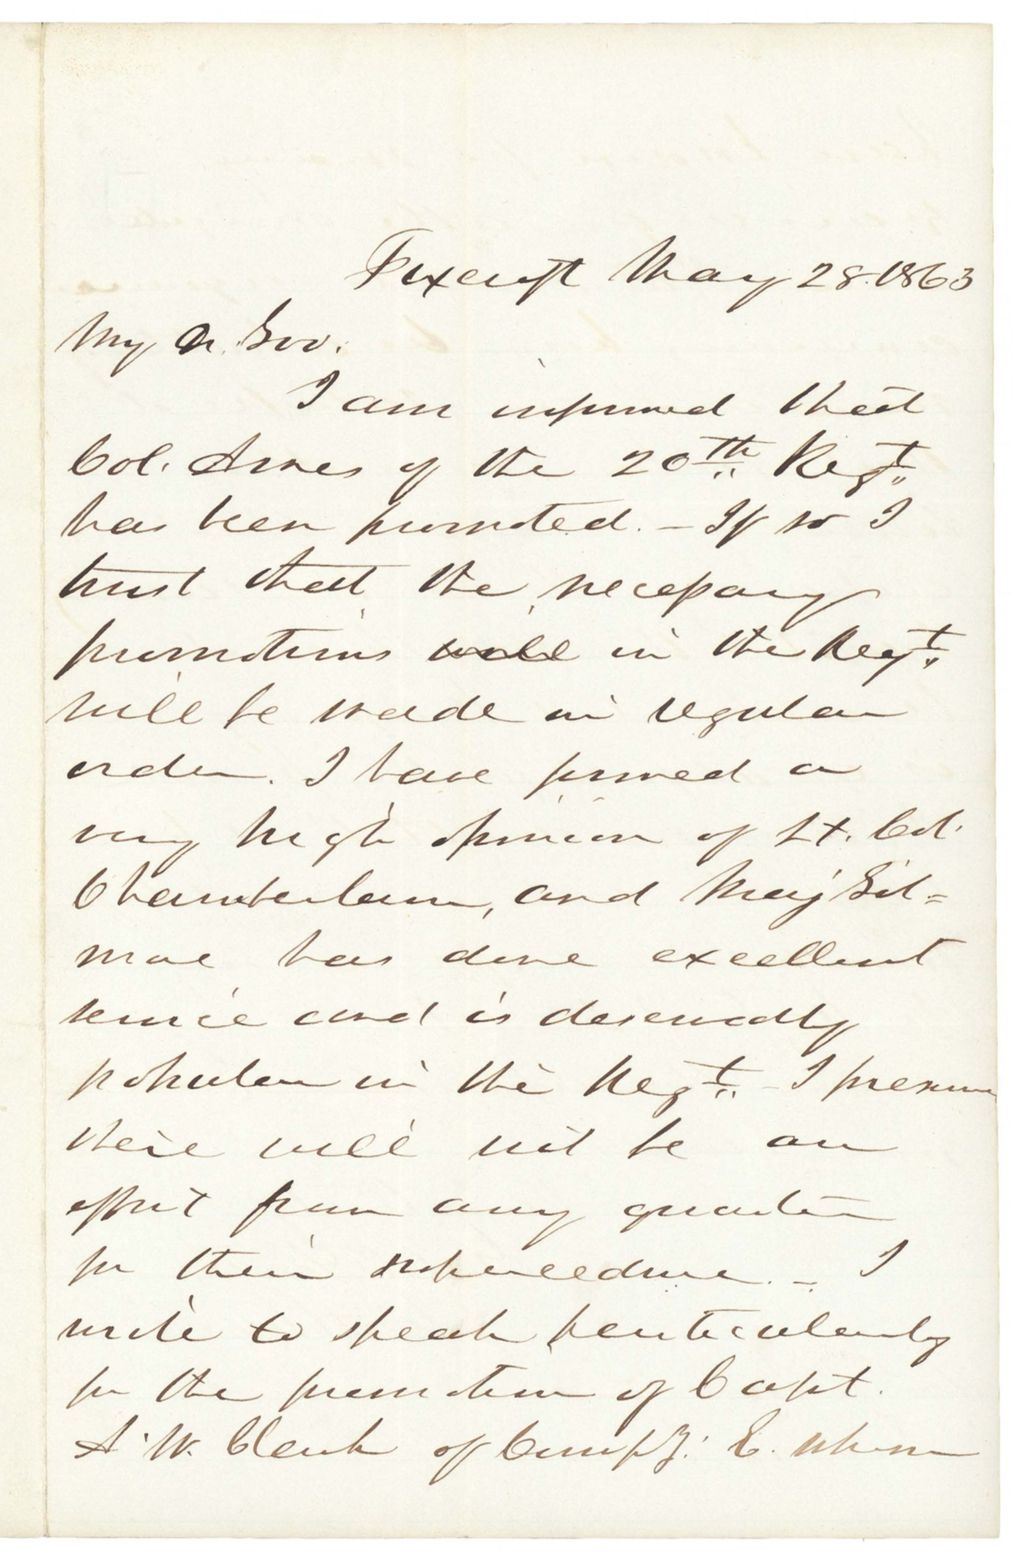 Foxcroft May 28. 1863
My Dr. Gov.
I am informed that
Col. Ames of the 20th Regt.
has been promoted. - If so I
trust that the necessary
promotions will in the Regt.
will be made in regular
order. I have formed a
very high opinion of Lt. Col.
Chamberlain, and Maj Gil=
more has done excellent
service and is deservedly
popular in the Regt. - I presume
there will not be an
effort from any quarter
for their supercedure. - I
write to speak particularly
for the promotion of Capt.
A. W. Clark of Compy. E. whom